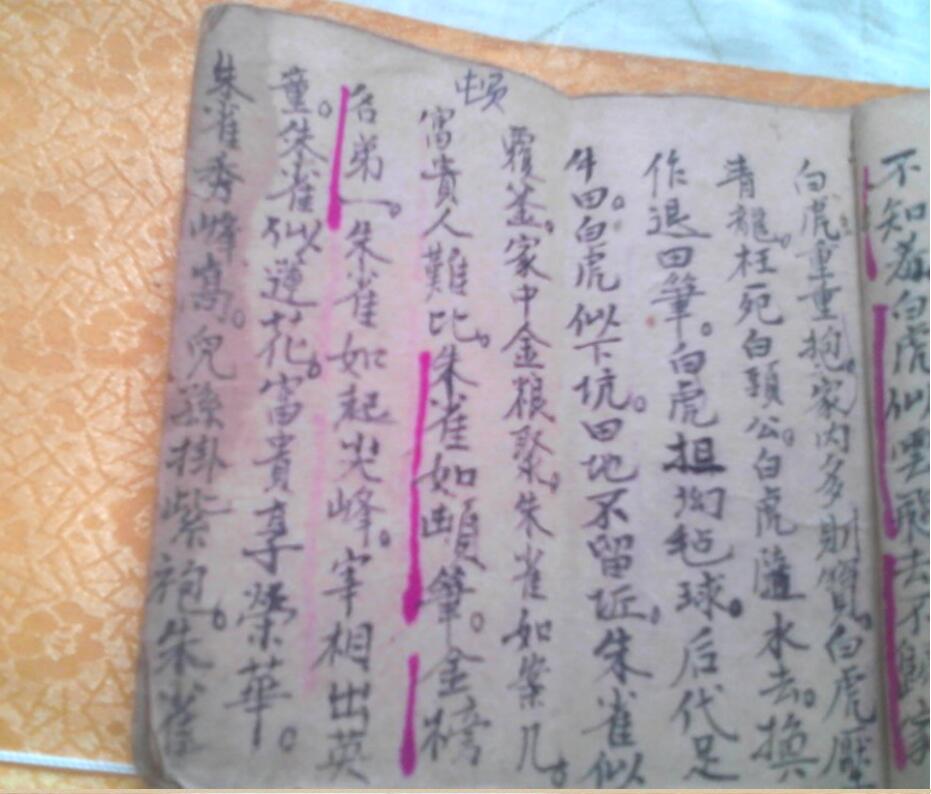 不知羞白虎似雲飛去不歸家
白虎重重抱。家内多財寶。白虎壓
青龍。枉死白頭公。白虎隨水去。換
作退田筆。白虎担拋毡球。后代足
牛田。白虎似下坑。田地不留坵。朱雀似
覆釜。家中金銀聚。朱雀如案几。
富貴人難比。朱雀如頓筆。金榜
頓
名弟一。朱雀如起尖峰。宰相出英
童。朱雀似蓮花。富貴享榮華。
朱雀秀峰高。兒孫掛紫袍。朱雀